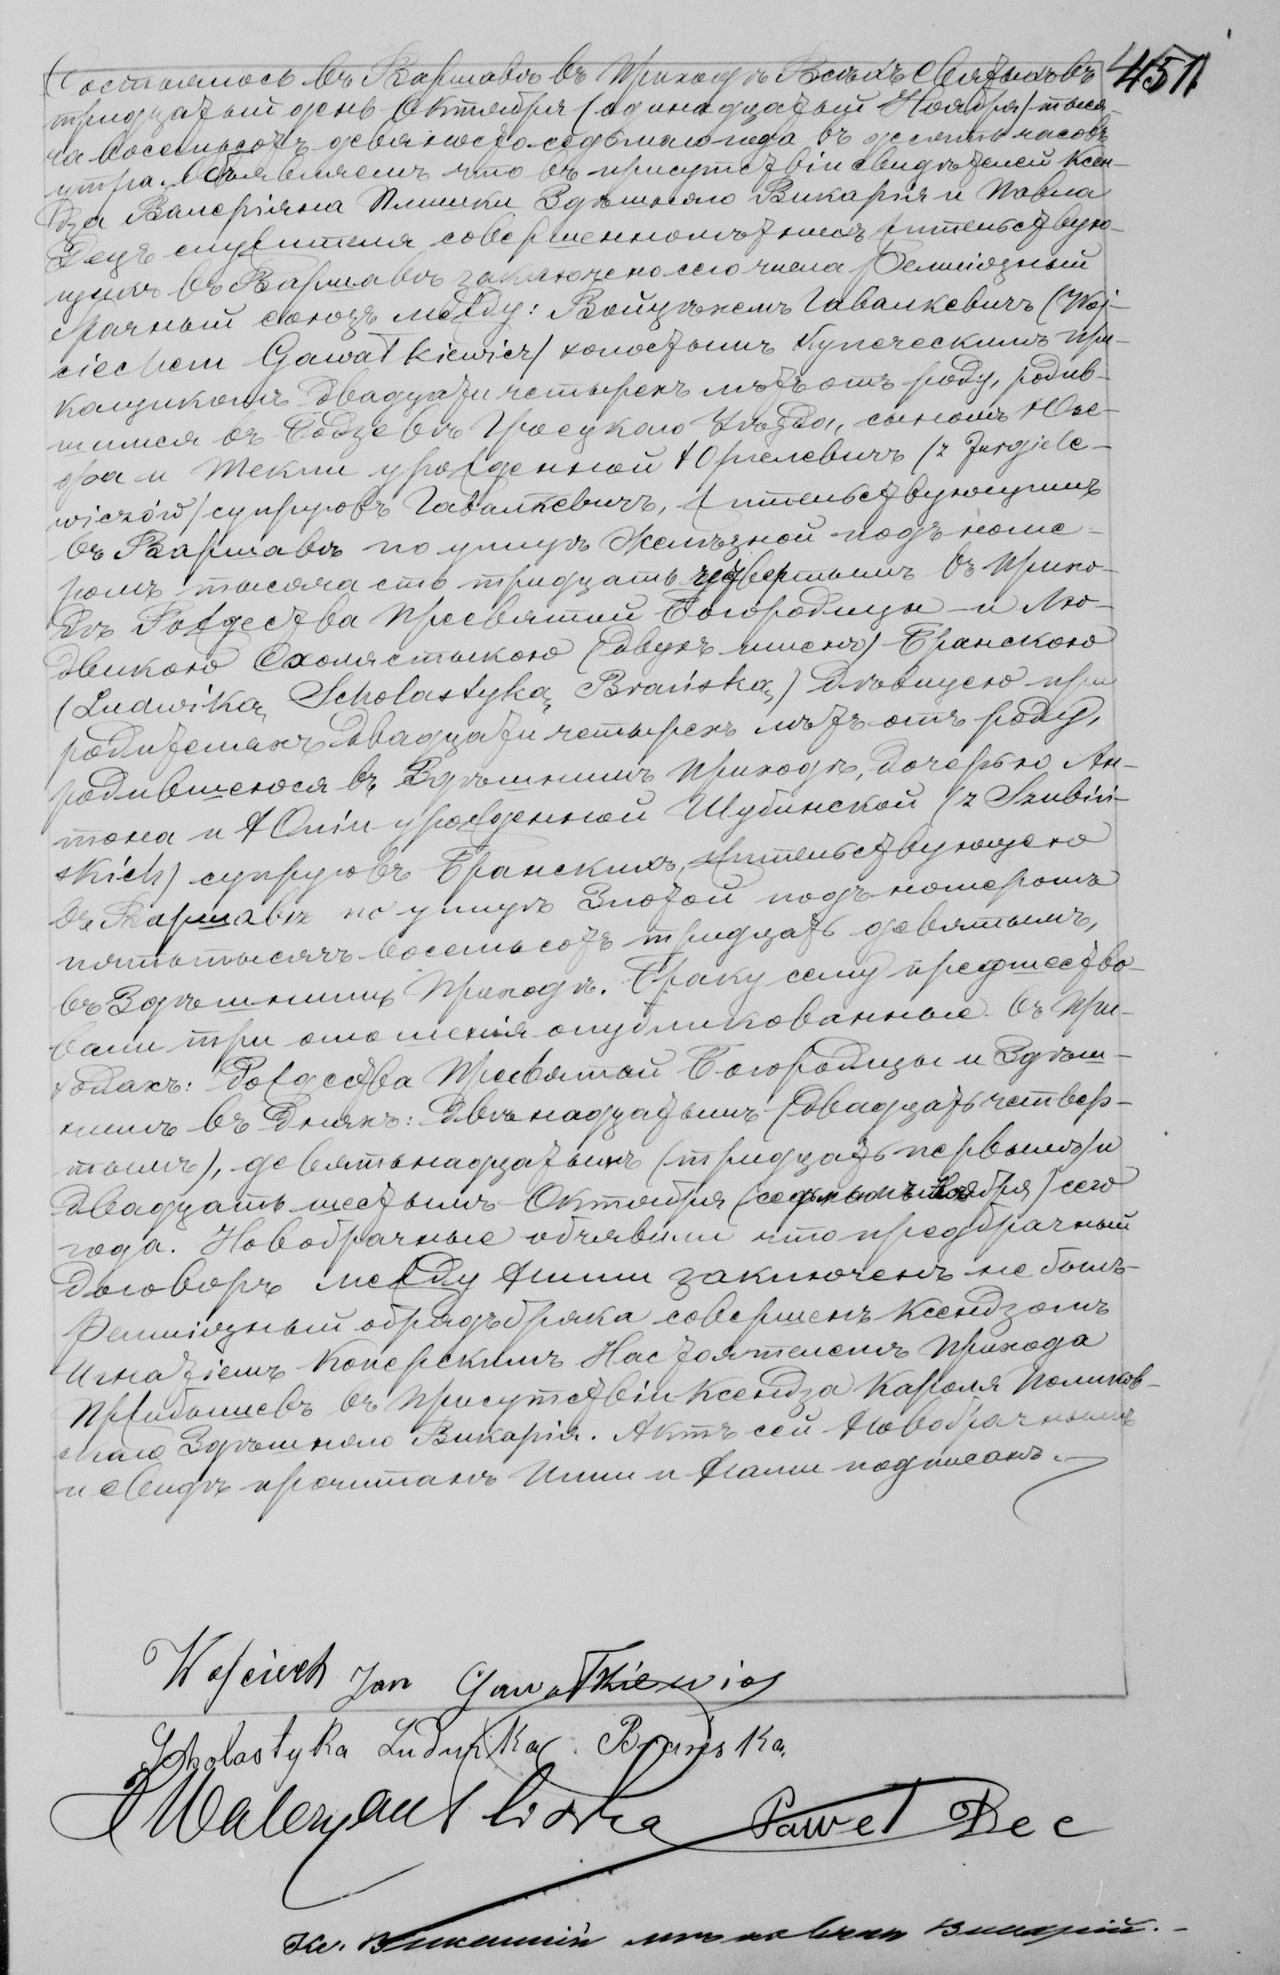 451
Состоялось въ Варшавѣ въ приходѣ Всѣхъ Святыхъ въ
тридцатый день Октября (одинадцатый Ноября) тыся-
ча восемьсотъ девяносто седьмаго года въ десять часовъ
утра. Объявляемъ что въ присутствіи свидѣтелей Ксен-
дза Валеріяна Плишки Здѣшняго Викарія и Павла
Децъ служителя совершеннолѣтнихъ жительствую-
щихъ въ Варшавѣ заключено сего числа религіозный
брачный союзъ между: Войцѣхемъ Гаваткевичъ (Woj-
ciechem Gawatkiewicz) холостымъ Купеческимъ при-
кащикомъ двадцати четырехъ лѣтъ отъ роду, родив-
шимся въ Гроецкаго Уѣзда, сыномъ Юзе-
фа и Текли урожденной Юргелевичъ (z Jurgiele-
wiczów) супруговъ Гаваткевичъ, жительствующимъ
въ Варшавѣ по улицѣ Желѣзной подъ номе-
ромъ тысяча сто тридцать четвертымъ въ прихо-
дѣ Рождества Пресвятой Богородицы и Лю-
двикою Схолястыкою (двухъ именъ) Бранскою
(Ludwiką Scholastyką Brańską) дѣвицею при
родителяхъ двадцати четырехъ лѣтъ отъ роду,
родившеюся въ Здѣшнимъ приходѣ, дочерью Ан-
тона и Юліи урожденной Шубинской (z Szubiń-
skich) супруговъ Бранскихъ, жительствующею
въ Варшавѣ по улицѣ Злотой подъ номеромъ
пять тысячъ восемьсотъ тридцать девятымъ,
въ Здѣшнимъ приходѣ. Браку сему предшество-
вали три оглашенія опубликованные въ при-
ходахъ: Рождества Пресвятой Богородицы и Здѣш-
нимъ въ дняхъ: двѣнадцатымъ (двадцать четвер-
тымъ), девятьнадцатымъ (тридцать первымъ) и
двадцать шестымъ Октября (седьмымъ Ноября) сего
года. Новобрачные объявили что предбрачный
договоръ между ними заключенъ не былъ
Религіозный обрядъ брака совершенъ Ксендзомъ
Игнатіемъ Коперскимъ Настоятелемъ прихода
въ присутствіи Ксендза Кароля
Здѣшняго Викарія. Актъ сей Новобрачнымъ
и свидѣ прочитанъ Ими и Нами подписанъ.
Wojciech Jan Gawatkiewicz
Scholastyka Ludwika Brańska
X Waleryan Pliszka Paweł Dec
Кс. Викарій.